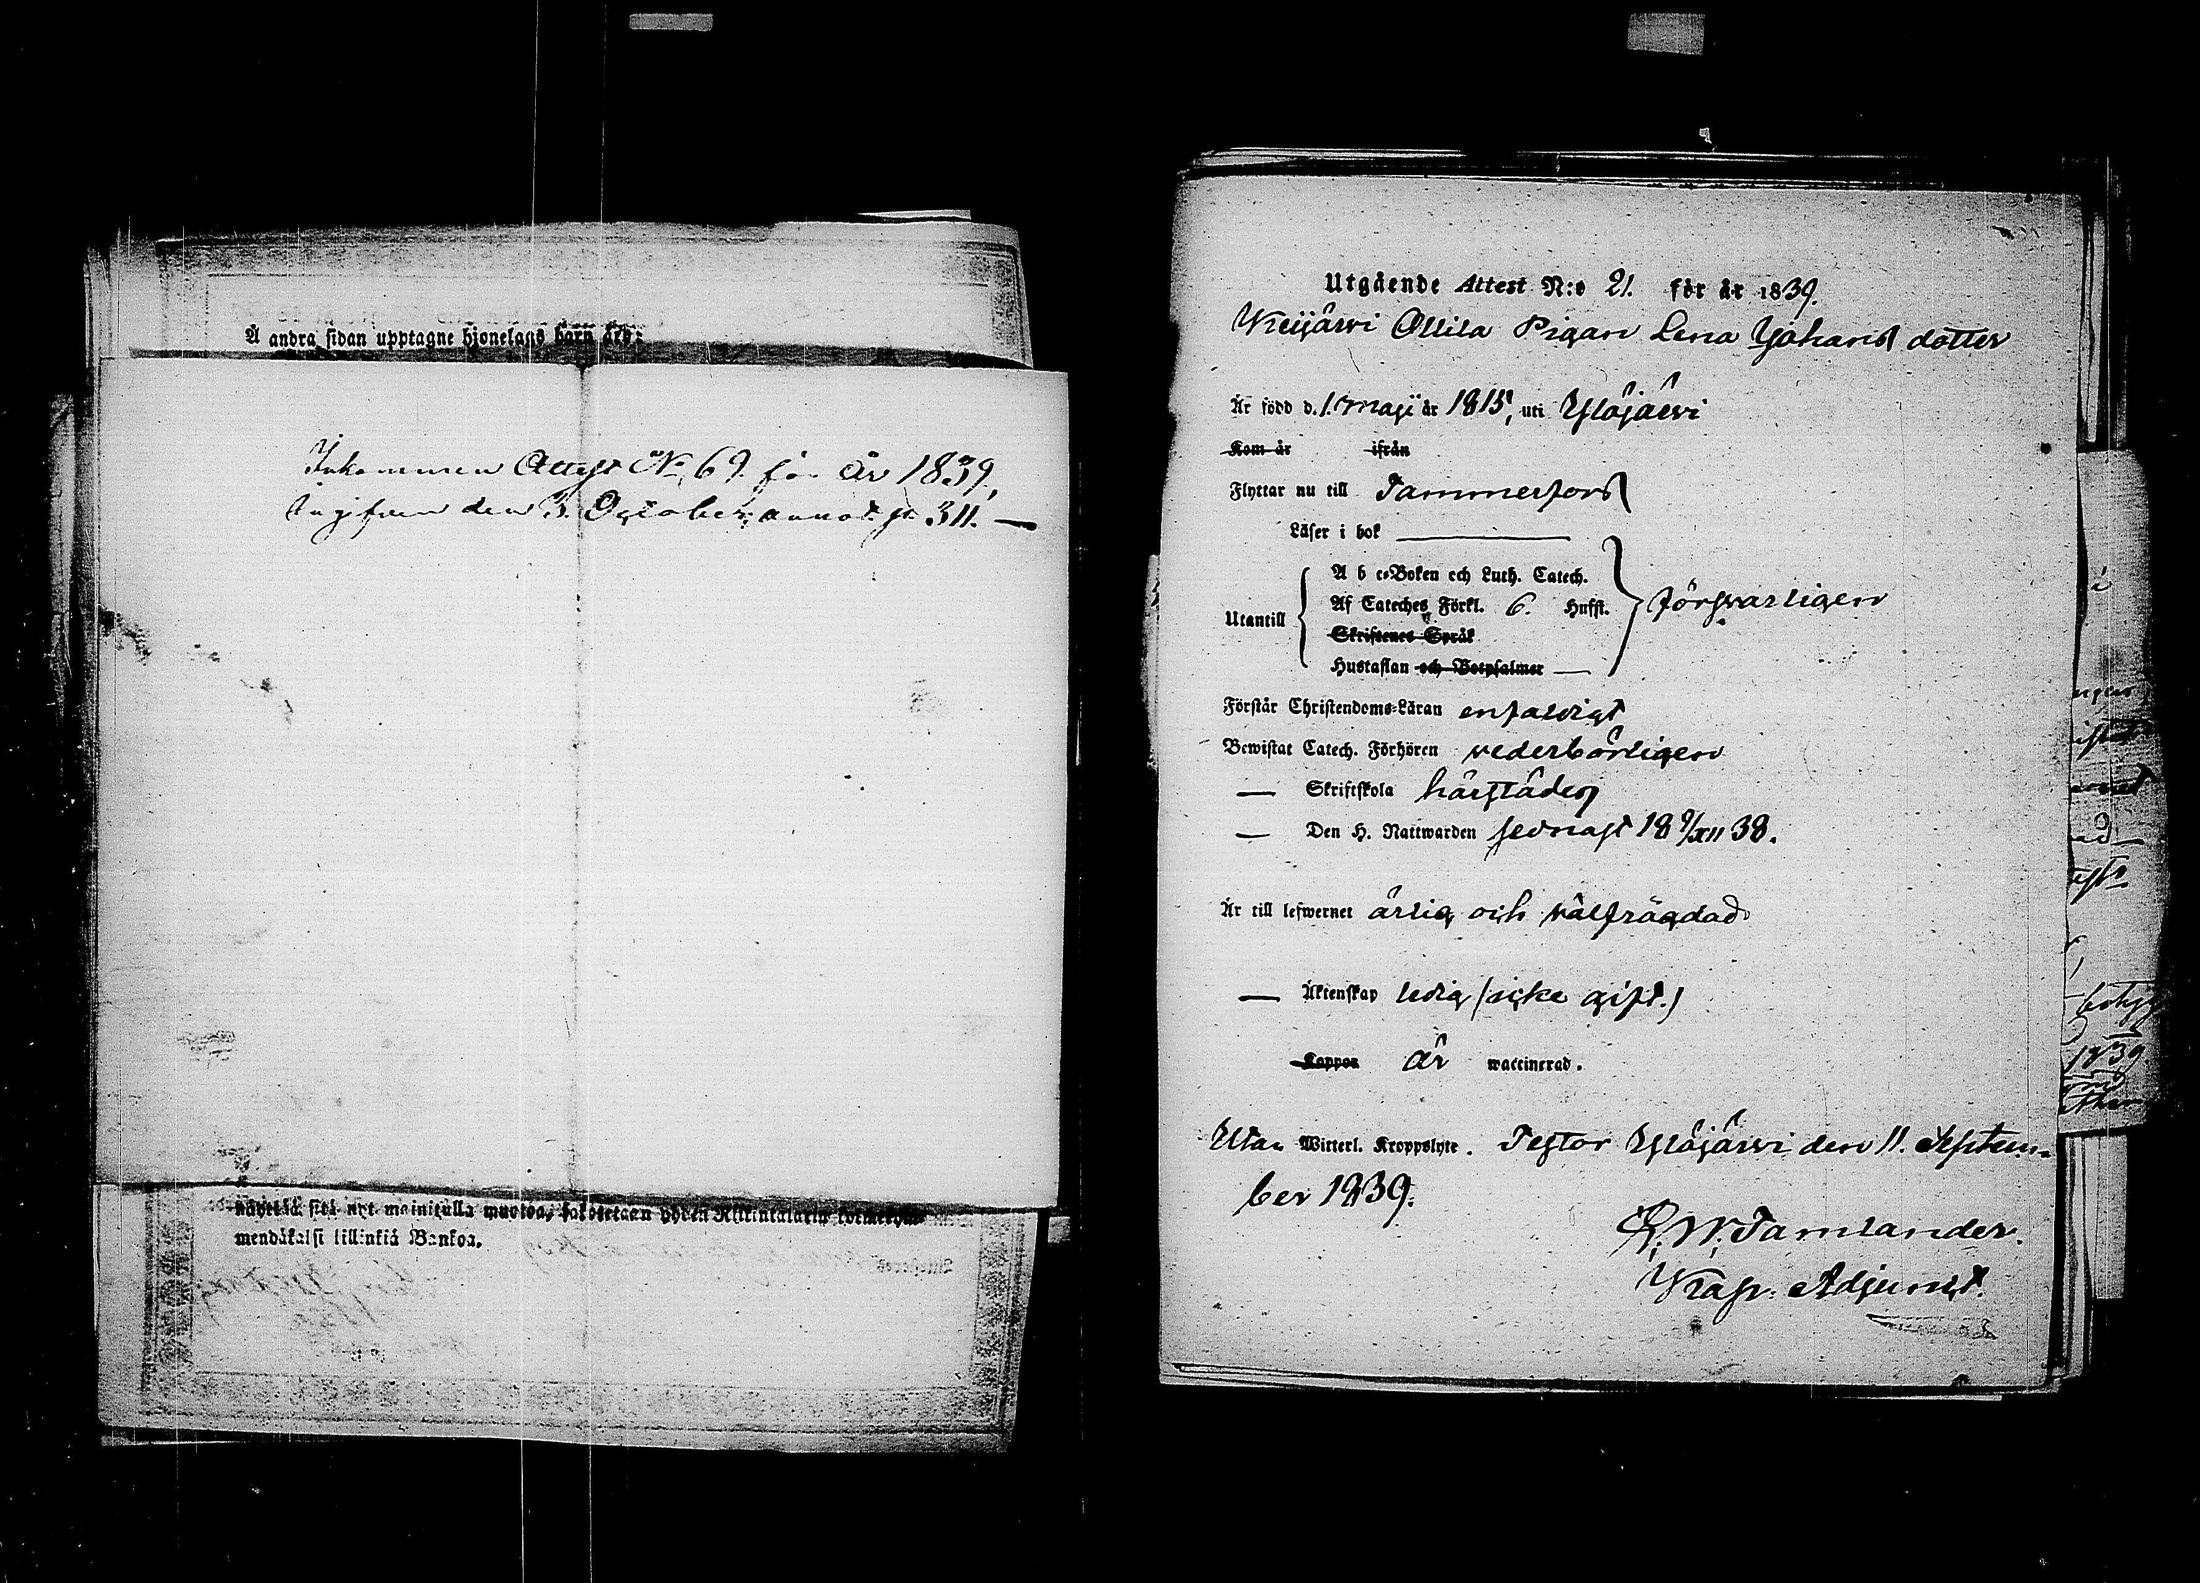 Å andra sidan upptagne hjonelags barn äro:
Inkommen Attest No 69. för år 1839,
ingifven den 3. October, annot. p. 311. —
mendäkalsi lillinkiä Bankoa.
Utgående Attest N:o 21. för år 1839.
Keijärvi Ollila Pigan Lena Johansdotter
Är född d. 1. Maji år 1815, uti Ylöjärvi
Kom år ifrån
Flyttar nu till Tammerfors
Läser i bok
A b c-Boken och Luth. Catech.
Af Cateches Förkl. 6. Hufst.
Utantill
försvarligen
Skriftenes Språk
Hustaflan och Botpsalmer —
Förstår Christendoms-Läran enfaldigt
Bewistat Catech. Förhören vederbörligen
— Skriftskola härstädes
— Den H. Nattwarden sednast 18 9/XII 38.
Är till lefwernet ärlig och välfrägdad
— Äktenskap ledig (icke gift.)
Koppor är waccinerad.
Utan Witterl. Kroppslyte. Testor Ylöjärvi den 11. Septem-
ber 1839.
W. Tamlander.
Kap. Adjunct.
1839